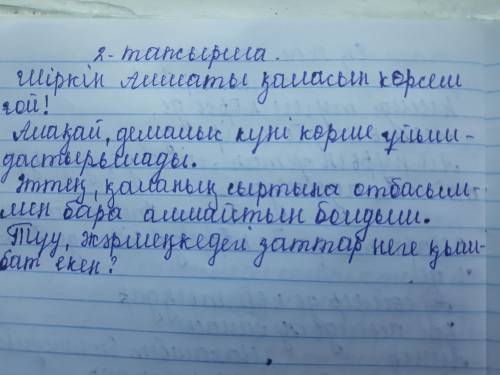 2-тапсырма.
Шіркін Алматы қаласын көрсем
ғой!
Алақай, демалыс күні көрме ұйым-
дастырылады.
Әттең, қаланың сыртына отбасым-
мен бара алмайтын болдым.
Туу, жәрмеңкедегі заттар неге қым-
бат екен?